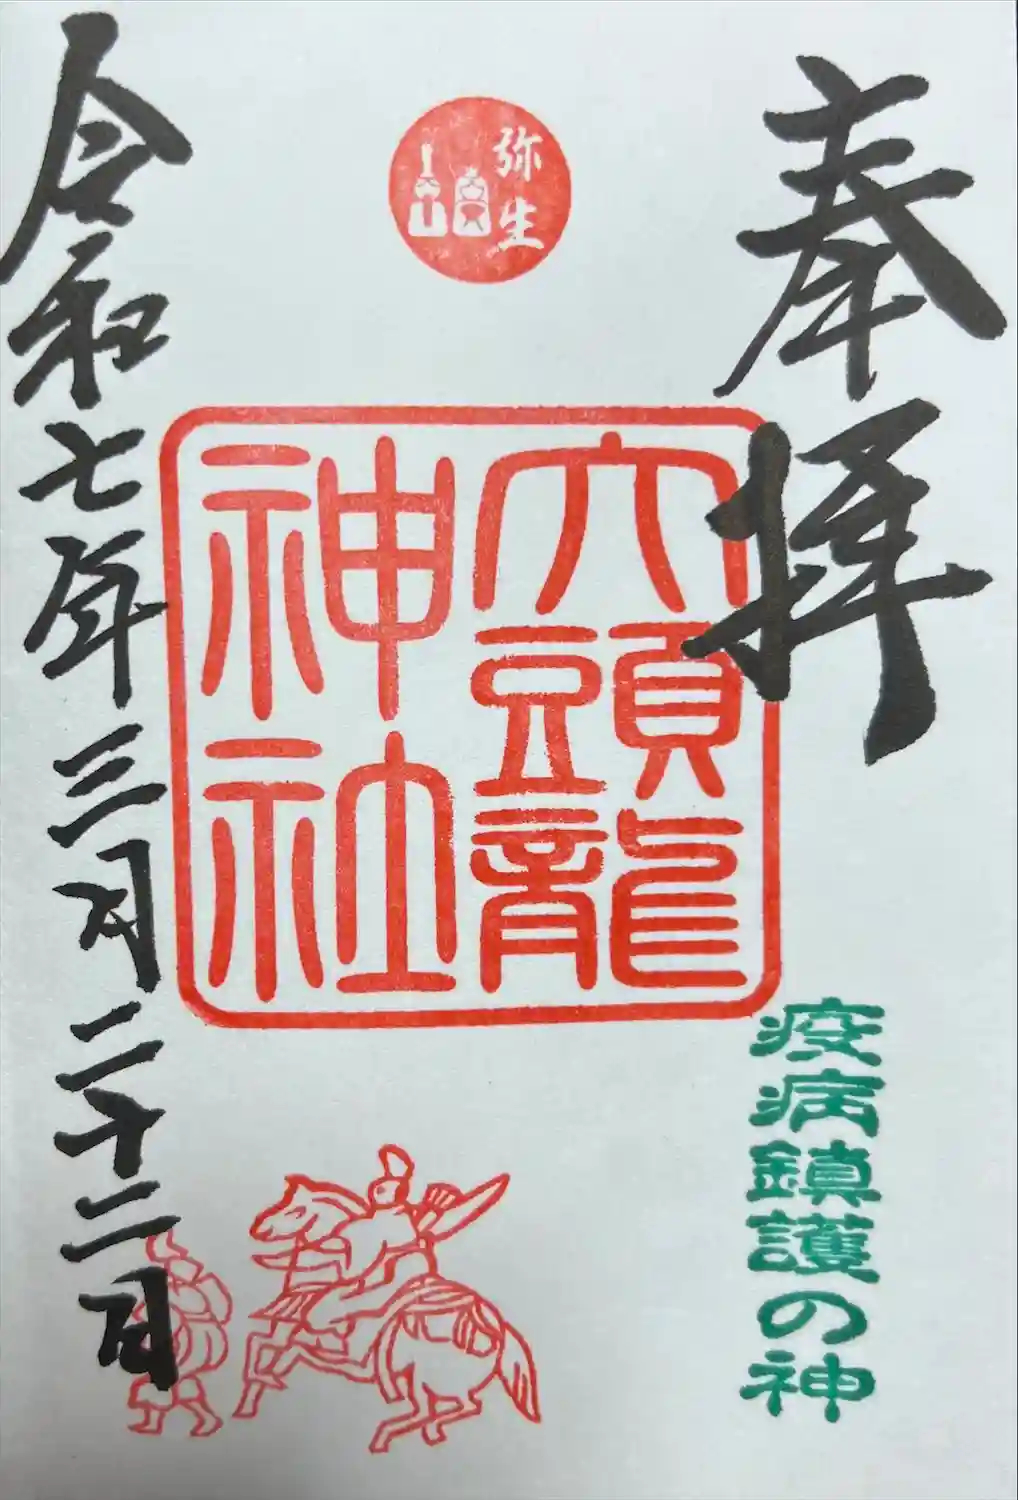 奉拝
弥生
大頭龍
神社
疫病鎮護の神
令和七年三月二十二日